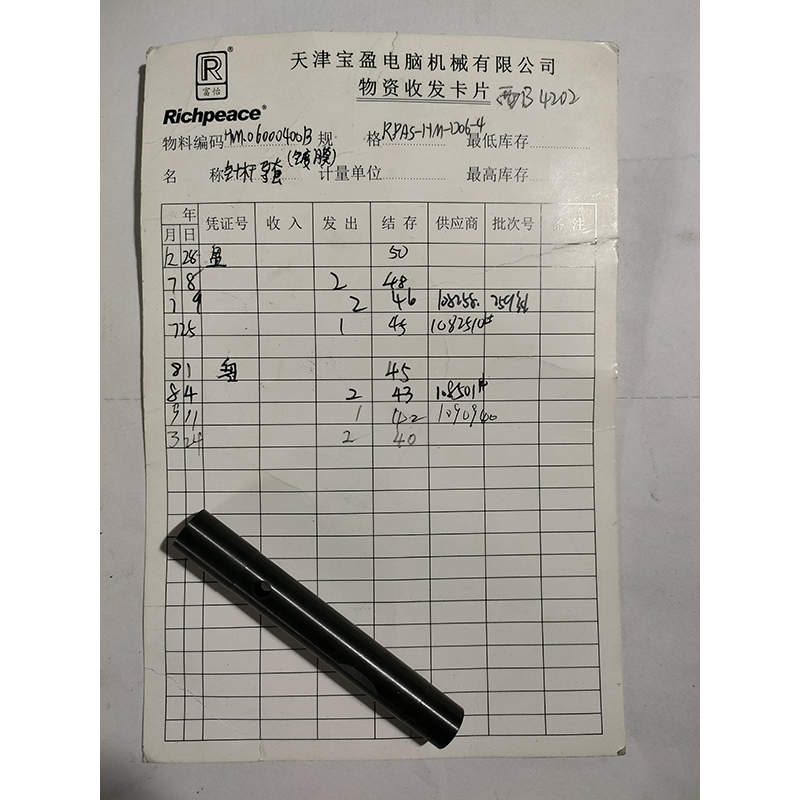 R®
富怡
Richpeace®
天津宝盈电脑机械有限公司
物资收发卡片 西B4202
物料编码HM06000400B 规格RPAS-HM-1206-4 最低库存
名称 针杆导套(镀膜) 计量单位 最高库存
年 凭证号 收入 发出 结存 供应商 批次号 备注
月 日
12 28 盘 50
7 8 2 48
7 9 2 46 108258.
7 25 1 45 1082510#
8 1 盘 45
8 4 2 43 108501#
5 11 1 42 1090940
3 24 2 40